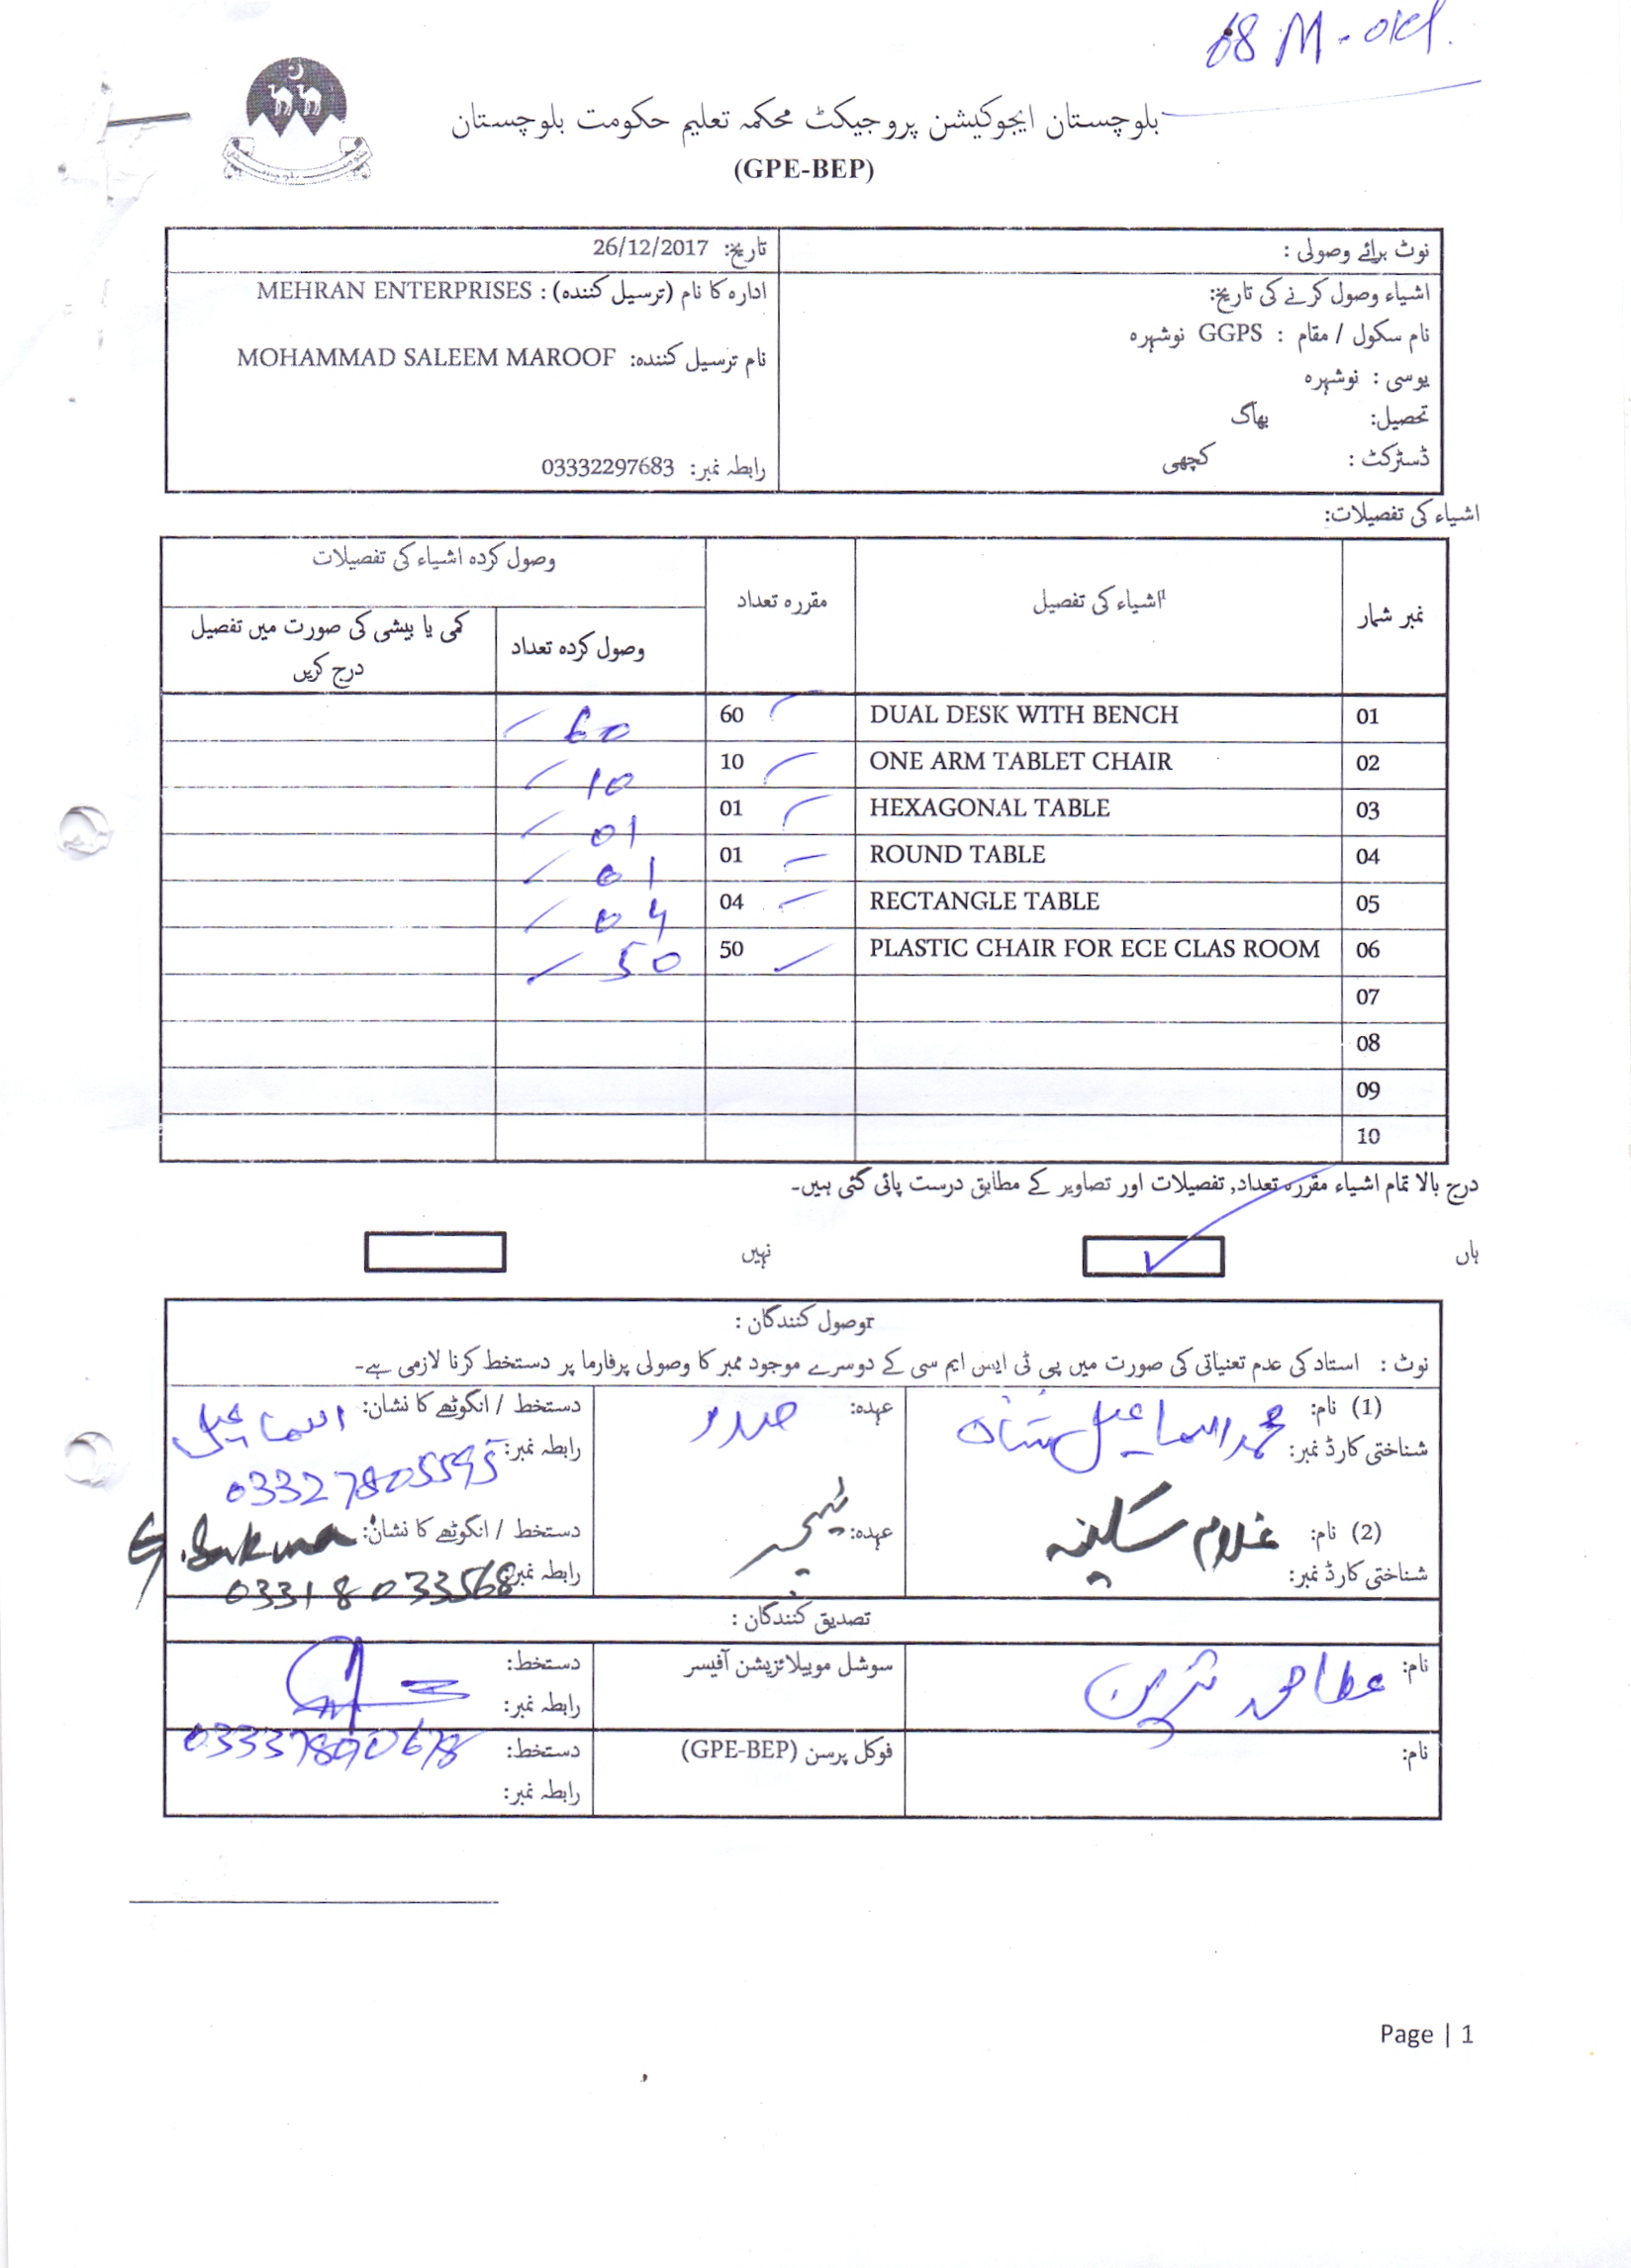 68 M-OK.
بلوچستان ایجوکیشن پروجیکٹ محکمہ تعلیم حکومت بلوچستان
(GPE-BEP)
نوٹ برائے وصولی :
تاریخ: 26/12/2017
اشیاء وصول کرنے کی تاریخ:
نام سکول / مقام : GGPS نوشہرہ
یوسی : نوشہرہ
تحصیل: بھاگ
ڈسٹرکٹ : کچھی
ادارہ کا نام (ترسیل کنندہ) : MEHRAN ENTERPRISES
نام ترسیل کنندہ: MOHAMMAD SALEEM MAROOF
رابطہ نمبر: 03332297683
اشیاء کی تفصیلات:
نمبر شمار اشیاء کی تفصیل مقررہ تعداد وصول کردہ اشیاء کی تفصیلات
وصول کردہ تعداد کمی یا بیشی کی صورت میں تفصیل
درج کریں
01 DUAL DESK WITH BENCH 60 60
02 ONE ARM TABLET CHAIR 10 10
03 HEXAGONAL TABLE 01 01
04 ROUND TABLE 01 01
05 RECTANGLE TABLE 04 04
06 PLASTIC CHAIR FOR ECE CLAS ROOM 50 50
07
08
09
10
درج بالا تمام اشیاء مقررہ تعداد, تفصیلات اور تصاویر کے مطابق درست پائی گئی ہیں۔
ہاں نہیں
وصول کنندگان :
نوٹ : استاد کی عدم تعنیاتی کی صورت میں پی ٹی ایس ایم سی کے دوسرے موجود ممبر کا وصولی پرفارما پر دستخط کرنا لازمی ہے۔
(1) نام: محمد اسماعیل شاہ عہدہ: صدر دستخط / انگوٹھے کا نشان: اسماعیل
شناختی کارڈ نمبر: رابطہ نمبر: 03327805595
(2) نام: غلام سکینہ عہدہ: ٹیچر دستخط / انگوٹھے کا نشان: G. Sakina
شناختی کارڈ نمبر: رابطہ نمبر: 03318033568
تصدیق کنندگان :
نام: عطا محمد ترین سوشل موبیلائزیشن آفیسر دستخط:
رابطہ نمبر: 03337890678
نام: فوکل پرسن (GPE-BEP) دستخط:
رابطہ نمبر:
Page | 1